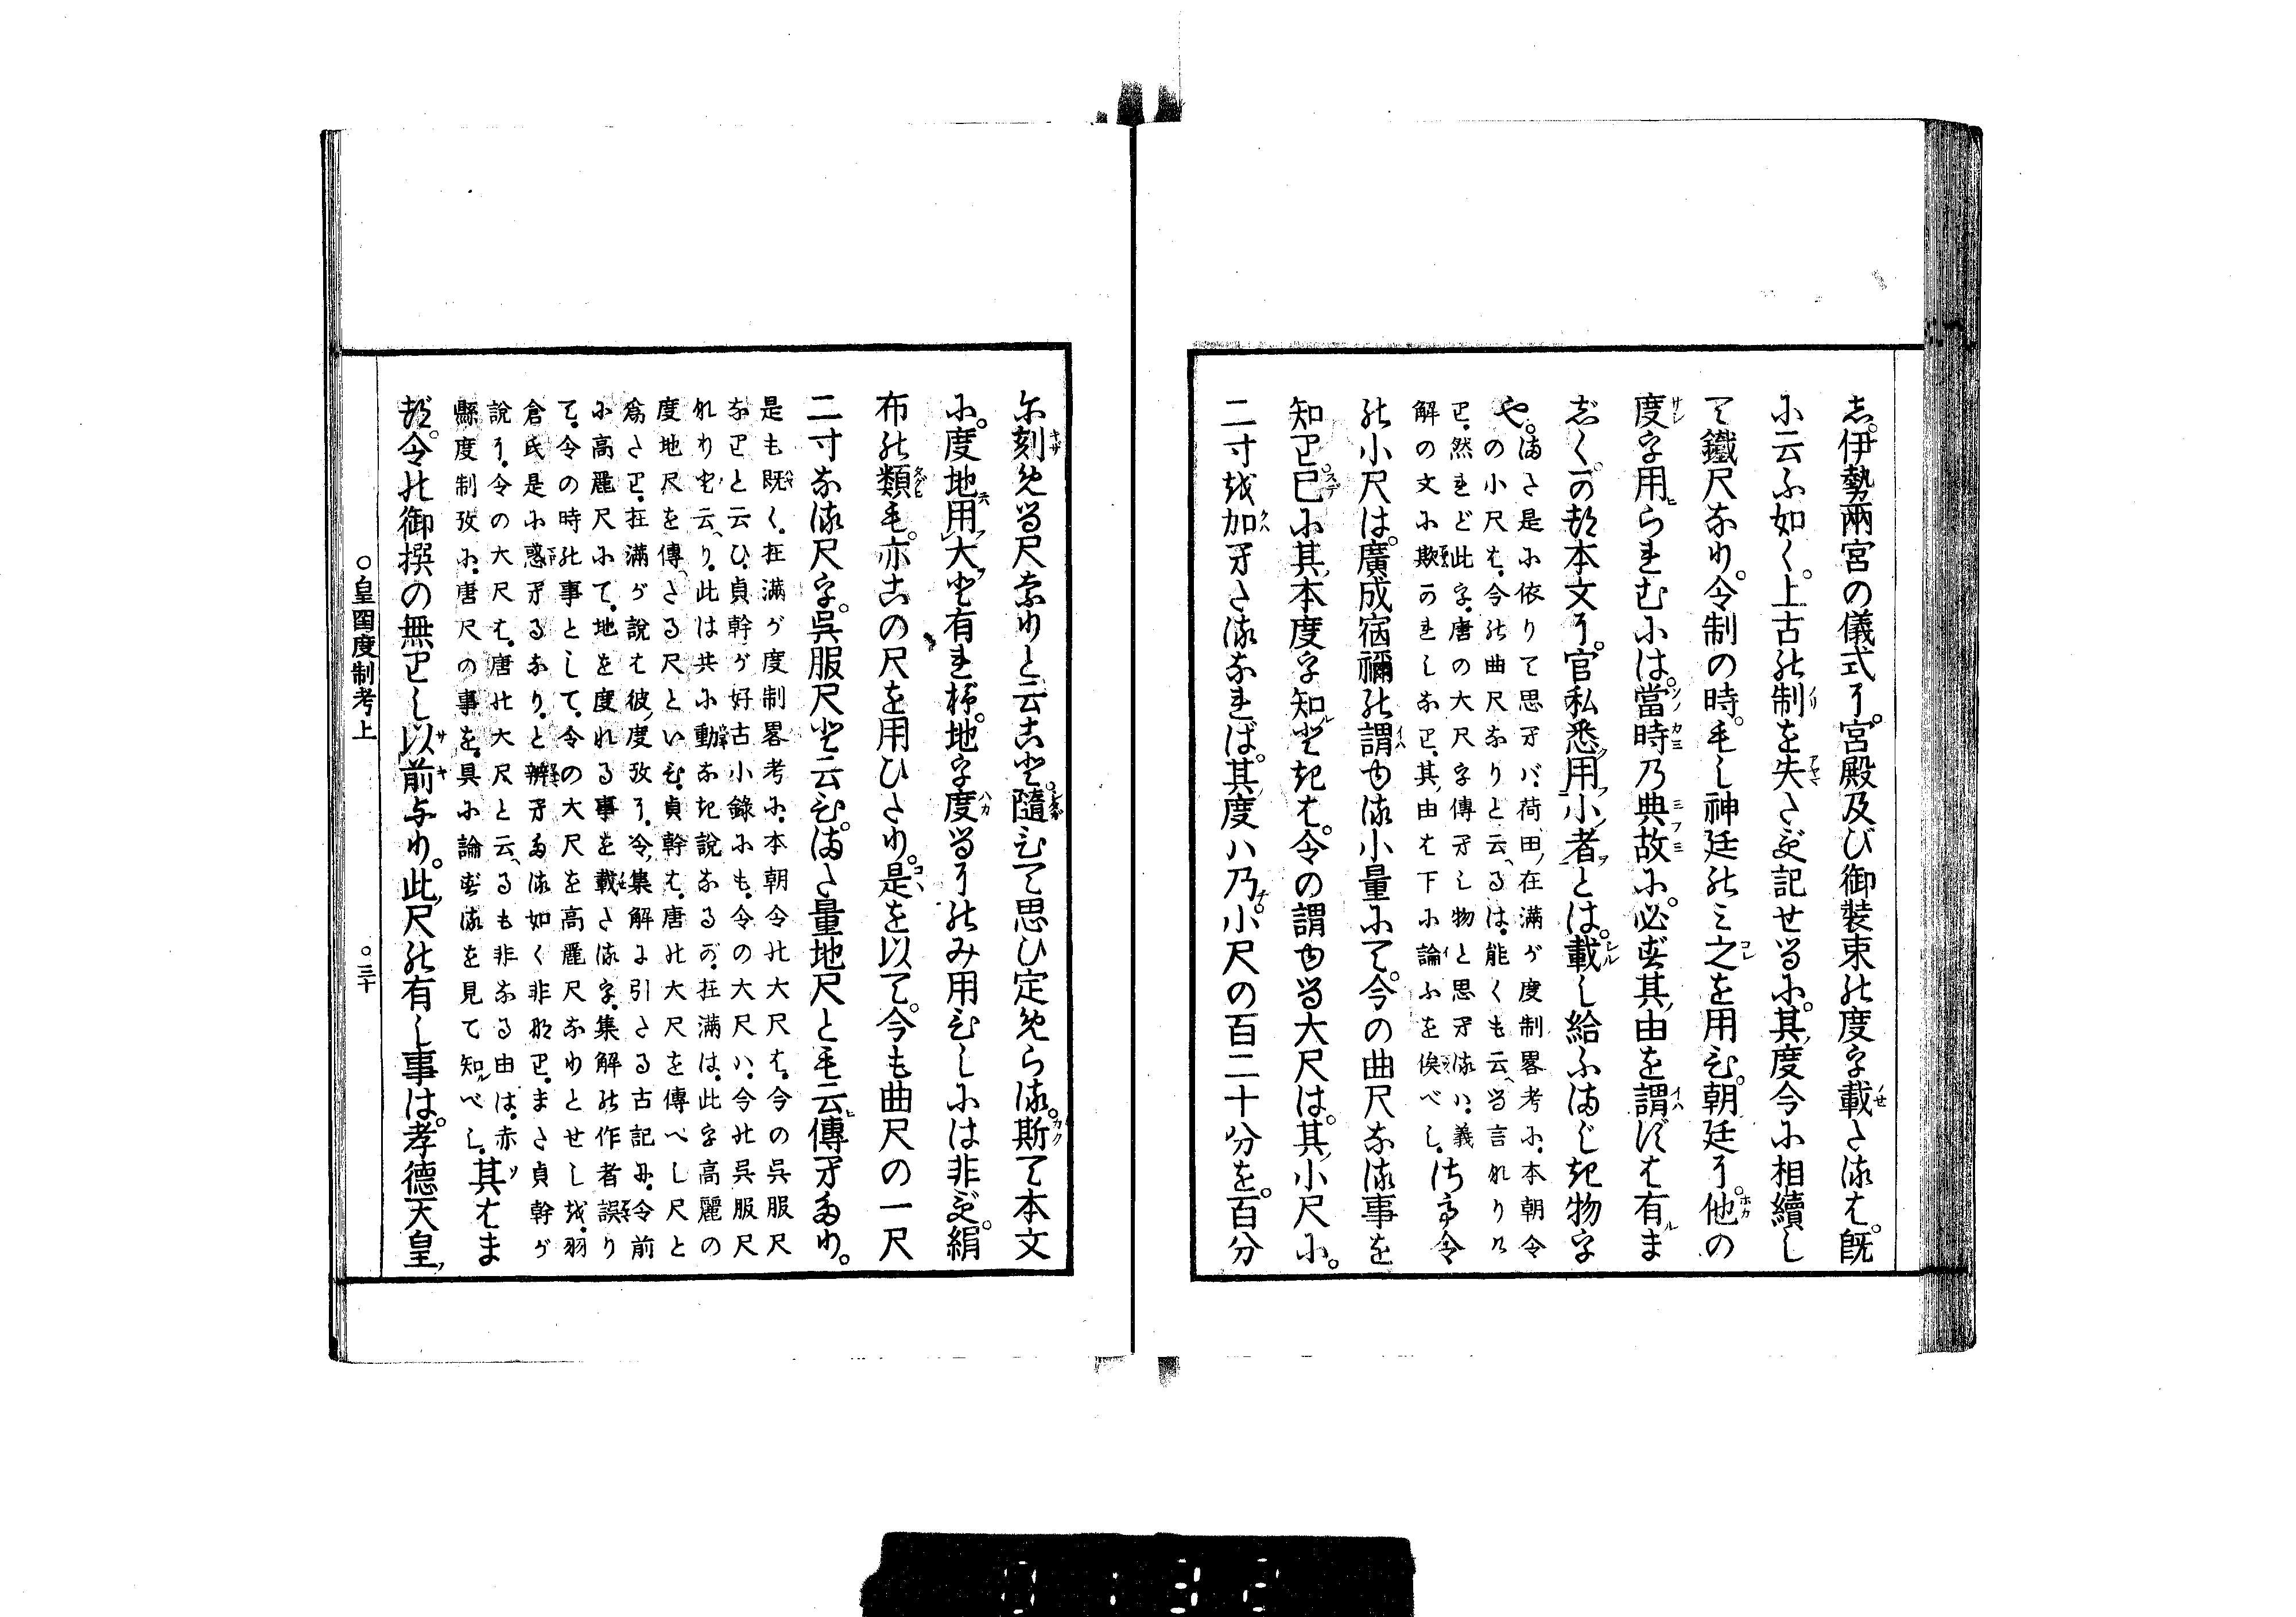 し。伊勢兩宮の儀式に。宮殿及び御裝束の度を載たるは。既
に云ふ如く。上古の制を失たず記せるに。其度今に相續し
て鐵尺なり。令制の時。もし神廷のミ之を用ひ。朝廷に他の
度を用られむには。當時乃典故に。必ず其由を謂ずは有ま
じく。かつ本文に。官私悉用小者とは。載し給ふまじき物を
や。
また是に依りて思へバ、荷田在滿が度制畧考に、本朝令
の小尺は、今の曲尺なりと云へるは、能くも云へる言なりけ
り、然れど此を、唐の大尺を傳へし物と思へるハ、義
解の文に欺かれしなり、其由は下に論ふを俟べし、
さて令
の小尺は。廣成宿禰の謂ゆる小量にて。今の曲尺なる事を
知り已に其本度を知ときは。令の謂ゆる大尺は。其小尺に。
二寸を加へたるなれば。其度ハ乃小尺の百二十分を。百分
に刻める尺なりと云こと。隨ひて思ひ定めらる。斯て本文
に。度地用大と有れど。地を度るにのみ用ひしには非ず。絹
布の類も。亦この尺を用ひたり。是を以て。今も曲尺の一尺
二寸なる尺を。呉服尺と云ひ。また量地尺とも云傳へたり。
是も既く、在滿が度制畧考に、本朝令の大尺は、今の呉服尺
なりと云ひ、貞幹が好古小錄にも、令の大尺ハ、今の呉服尺
なりと云へり、此は共に動なき説なるが、在滿は、此を高麗の
度地尺を傳へたる尺といひ、貞幹は、唐の大尺を傳へし尺と
爲たり、在滿が説は彼度攷に、令集解に引たる古記に、令前
に高麗尺にて、地を度れる事を載たるを、集解の作者誤り
て、令の時の事として、令の大尺を高麗尺なりとせしを、羽
倉氏是に惑へるなり、と辨へたる如く非なり、また貞幹が
説に、令の大尺は、唐の大尺と云へるも非なる由は、赤
縣度制攷に、唐尺の事を、具に論ずるを見て知べし、
其はま
づ。令の御撰の無りし以前より。此尺の有し事は。孝德天皇
○皇國度制考上 ○三十